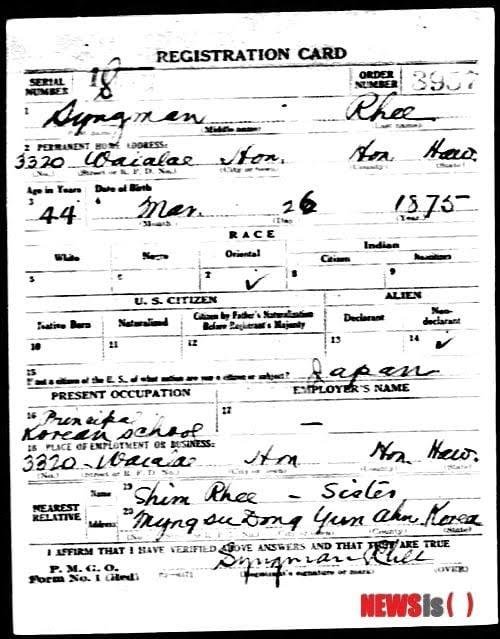 REGISTRATION CARD
SERIAL NUMBER 18 ORDER NUMBER 3957
1 Syngman Rhee
Middle name
2 PERMANENT HOME ADDRESS:
3320 Waialae Hon. Hon Haw.
(No.) (Street or R. F. D. No.) (City or town) (County) (State)
Age in Years Date of Birth
3 44 4 Mar. 26 1875
(Month) (Day) (Year)
RACE
White Negro Oriental Indian
Citizen
5 6 7 ✓ 8 9
U. S. CITIZEN ALIEN
Native Born Naturalized Citizen by Father's Naturalization Before Registrant's Majority Declarant Non-declarant
10 11 12 13 14 ✓
15 If not a citizen of the U. S., of what nation are you a citizen or subject? Japan
PRESENT OCCUPATION EMPLOYER'S NAME
16 Principal 17 —
Korean School
18 PLACE OF EMPLOYMENT OR BUSINESS:
3320 - Waialae Hon Hon Haw.
(No.) (Street or R. F. D. No.) (City or town) (County) (State)
NEAREST RELATIVE
Name 19 Shim Rhee - Sister
Address 20 Myng su Dong Yun Ahn Korea
I AFFIRM THAT I HAVE VERIFIED ABOVE ANSWERS AND THAT THEY ARE TRUE
P. M. G. O.
Form No. 1 (Red) Syngman Rhee
(Registrant's signature or mark) (OVER)
NEWSis( )